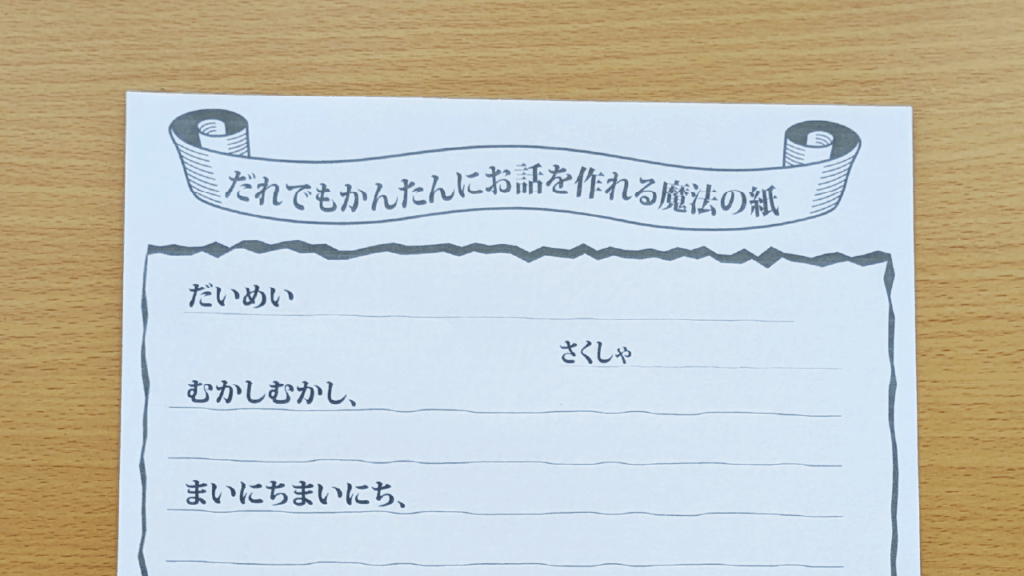 だれでもかんたんにお話を作れる魔法の紙
だいめい
さくしゃ
むかしむかし、
まいにちまいにち、